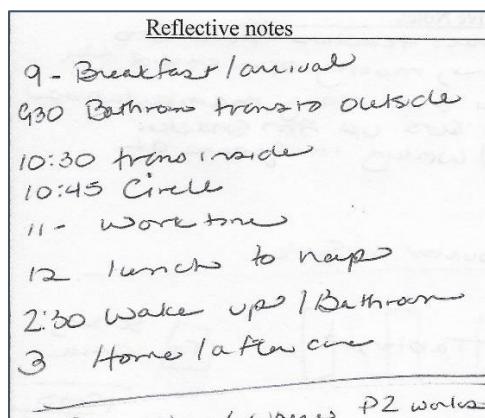 Reflective notes
9 - Breakfast / arrival
930 Bathroom trans to outside
10:30 trans inside
10:45 Circle
11 - work time
12 lunch to nap
2:30 Wake up / Bathroom
3 Home / after care
P2 works